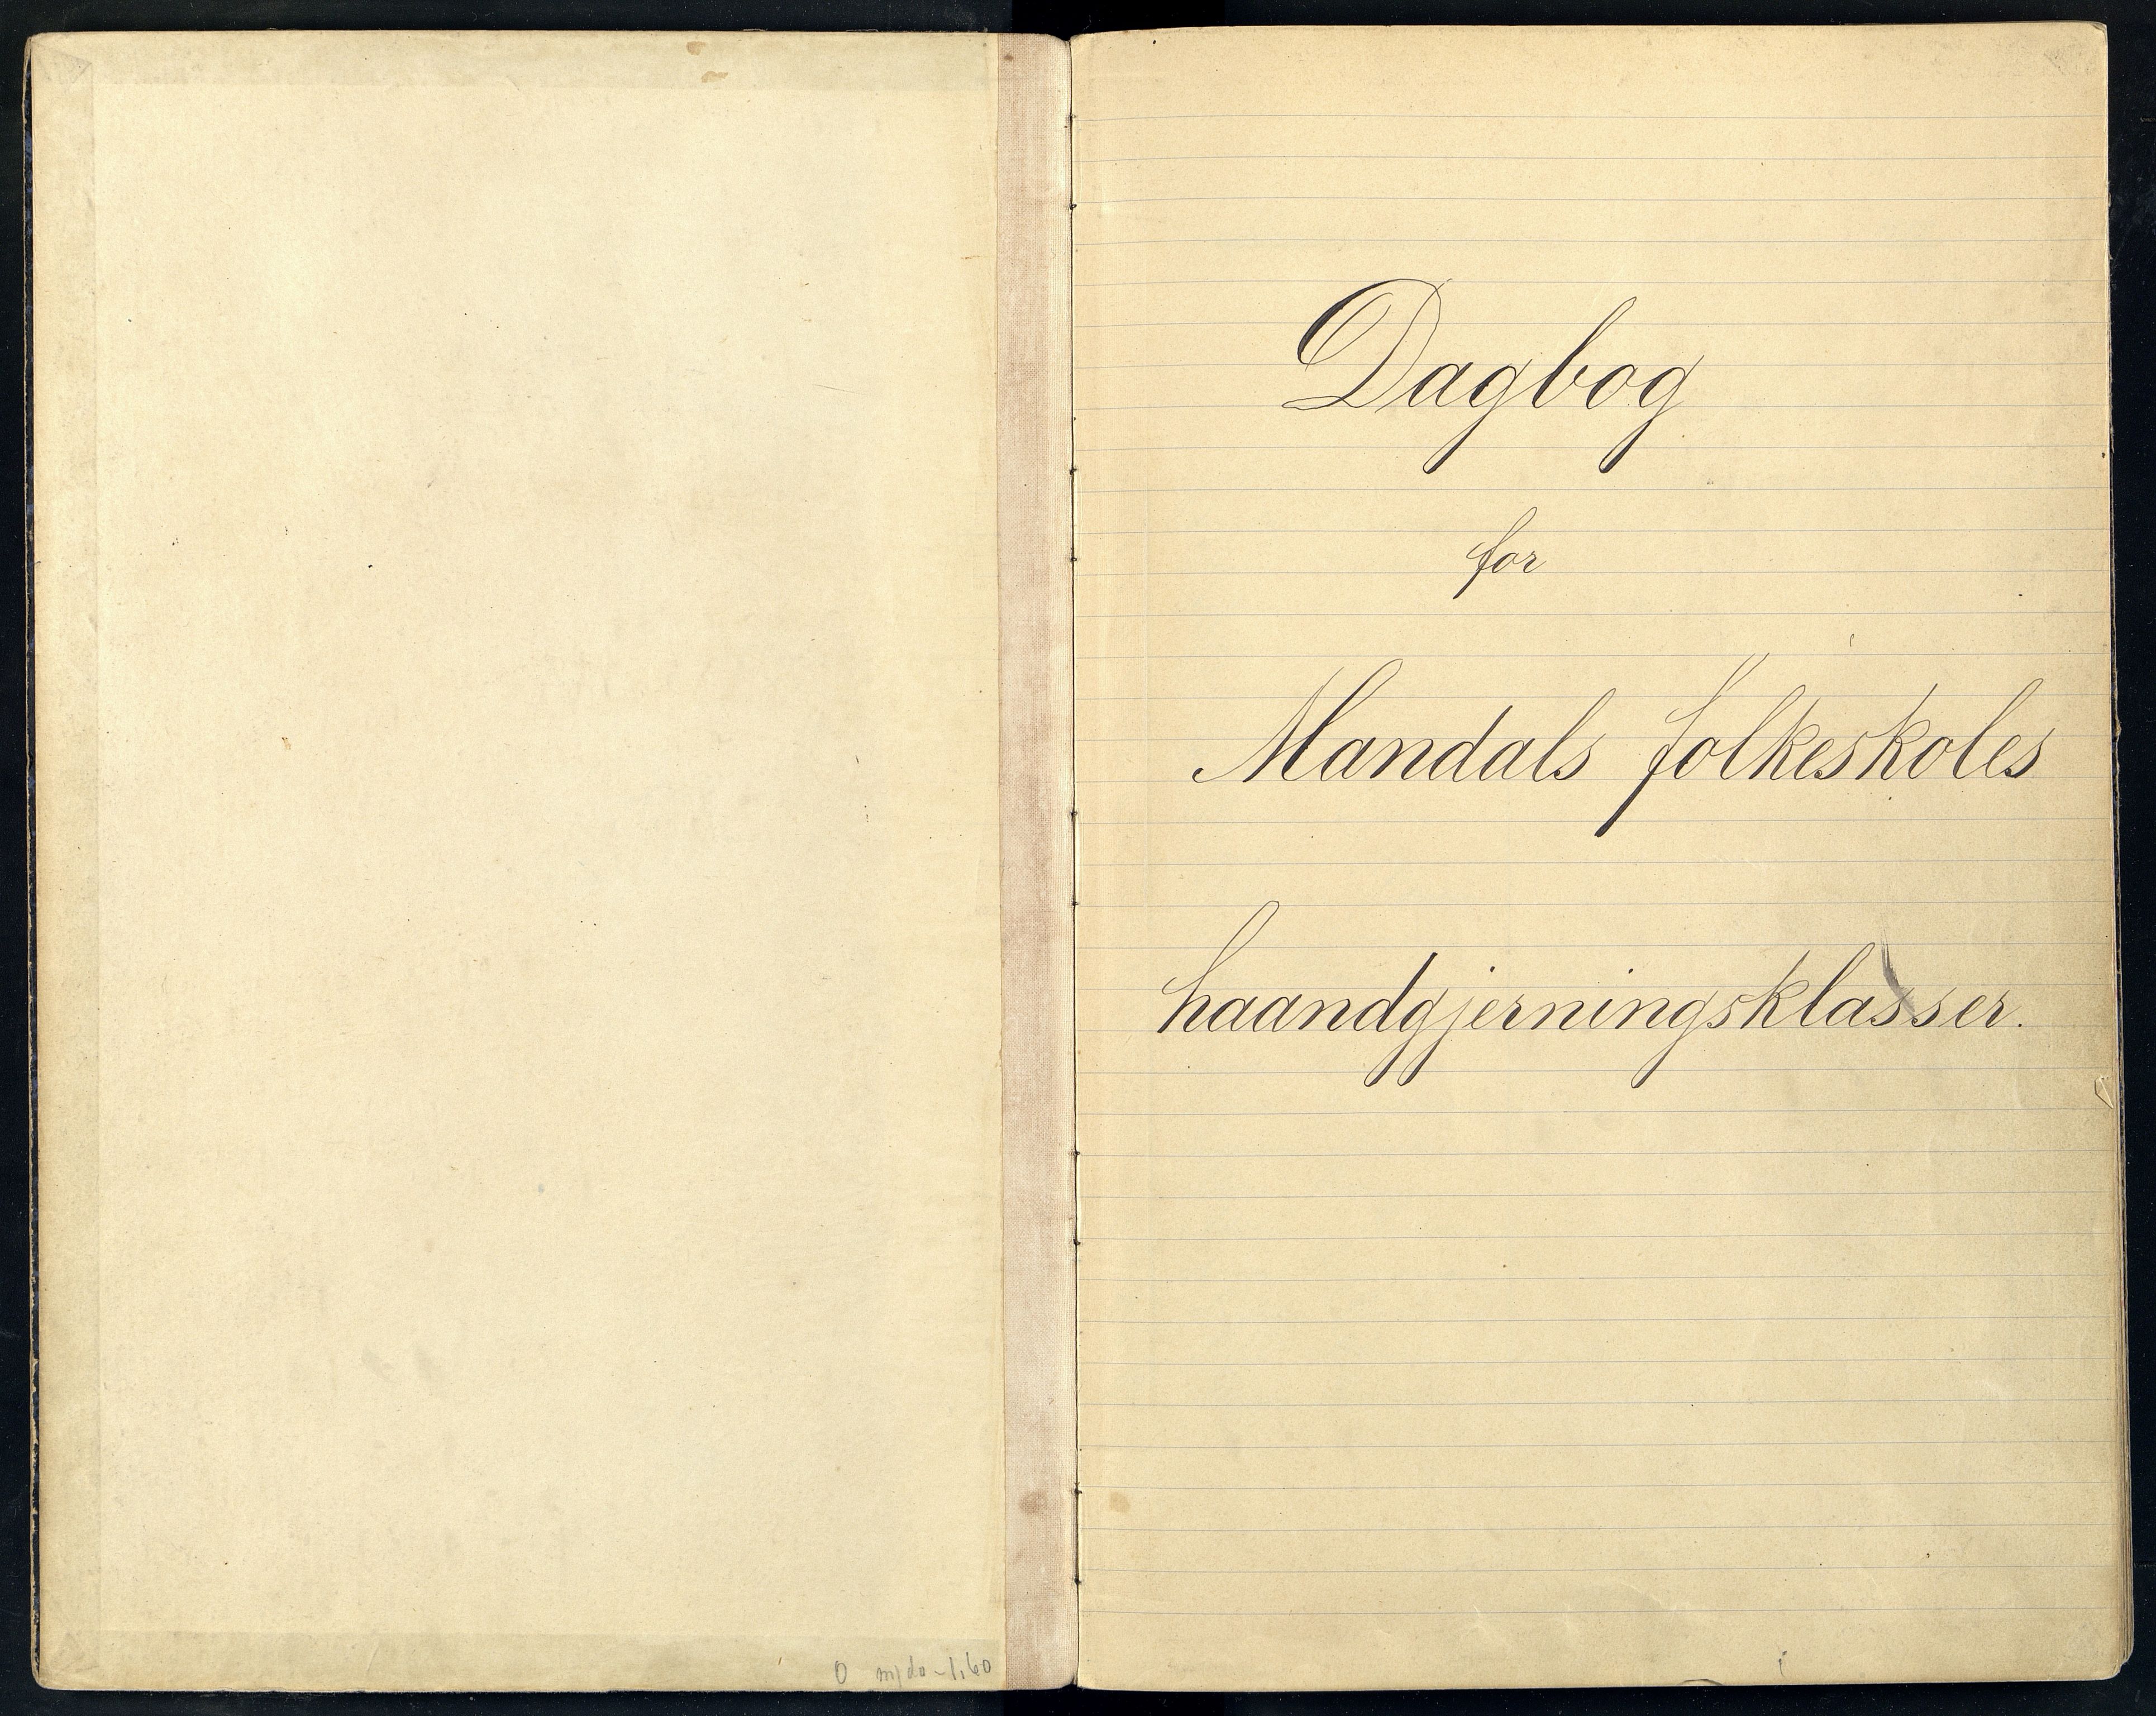 Dagbog
for
Mandals folkeskoles
haandgjerningsklasser.